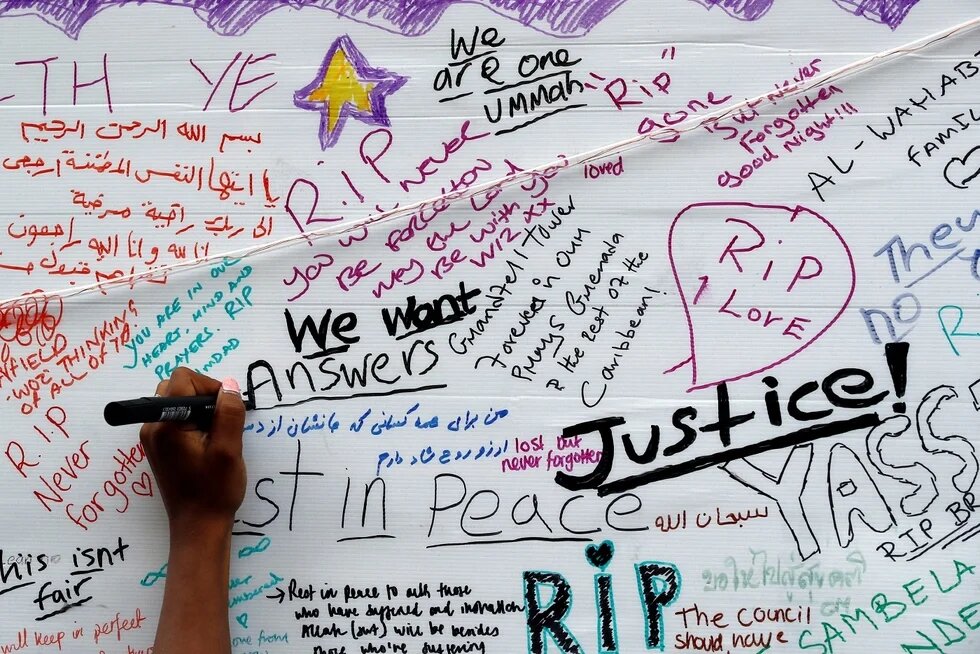 TH YE
We
are one
UMMAH
"RIP"
بسم الله الرحمن الرحيم
يا ايتها النفس المطمئنة ارجعي
الى ربك راضية مرضية
انا لله وانا اليه راجعون
R.I.P
you will never
Be forgotten
may the Lord
Be with you
W12 xx
loved
gone
is but Never
Forgotten
good Night!!!
AL-WAHABI
FAMIL
Grandfell Tower
Forever in our
Prayers Grenada
& the rest of the
Caribbean!
RIP
LOVE
They
NO
YOU ARE IN OUR
HEART, MIND AND
PRAYERS. RIP
THINKING
OF ALL OF
We Want
Answers
R.I.P
Never
forgotten
من برای همه کسانی که جانشان از د
ارزو روح شاد دارم
lost but
never forgotten
Justice!
YASS
RIP
est in Peace
سبحان الله
his isnt
fair
will keep in perfect
Rest in peace to all those
who have suffered and inshallah
Allah (swt) will be besides
those who're suffering
RIP
The council
should have
SAMBELA